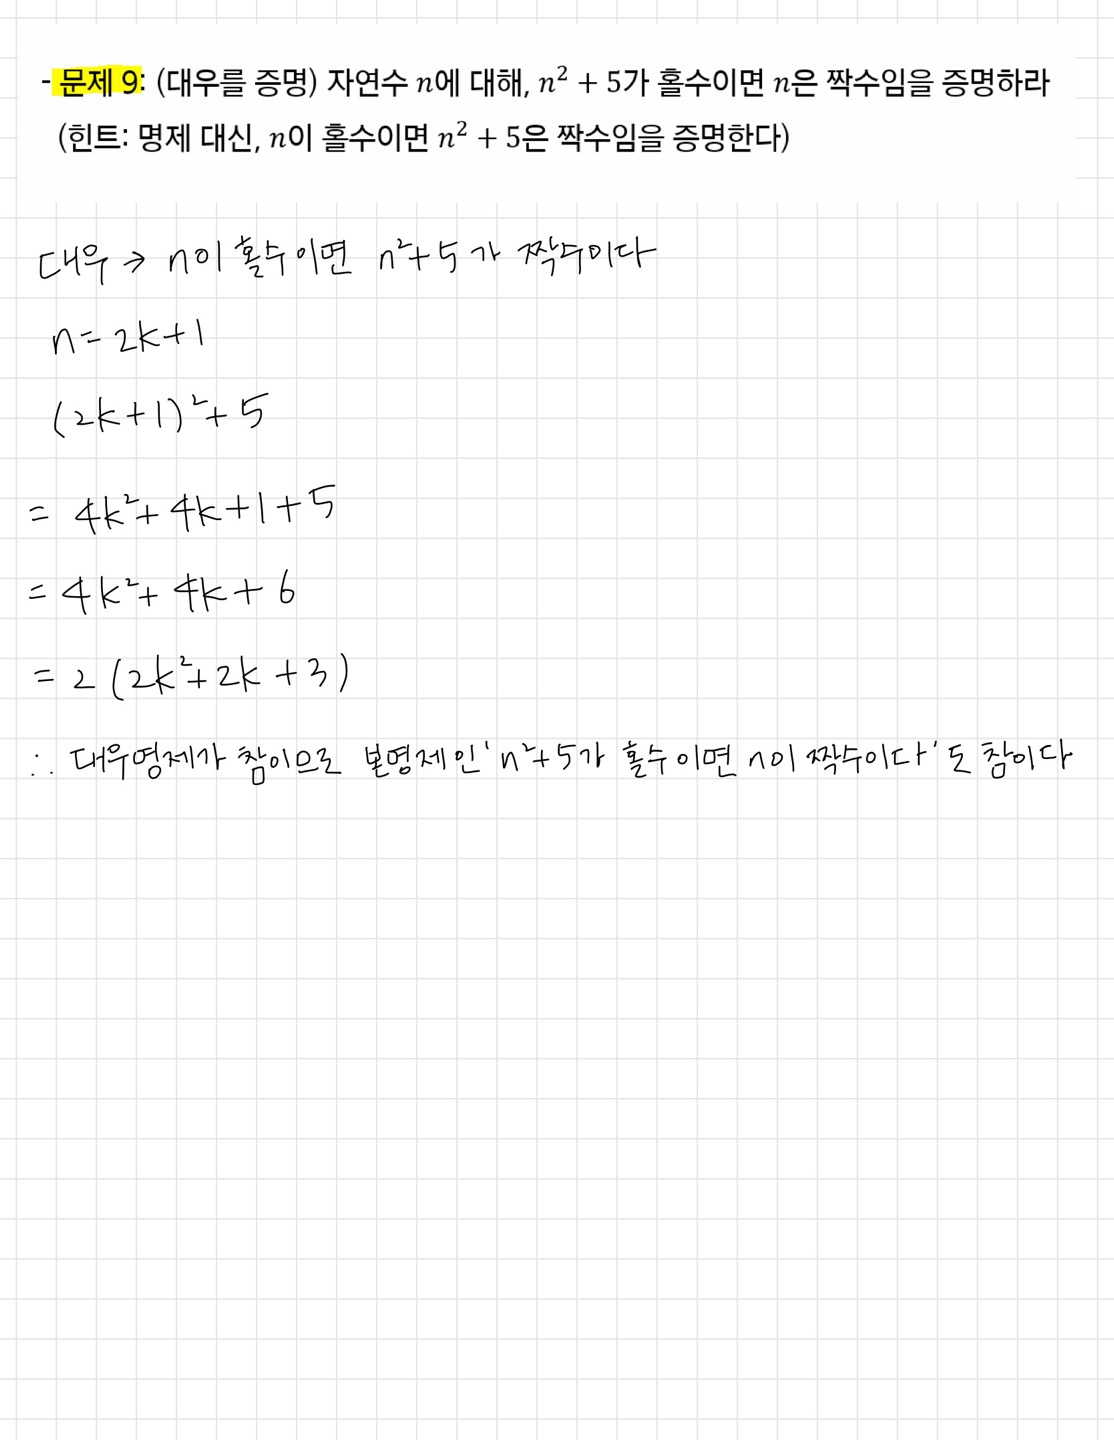 - 문제 9: (대우를 증명) 자연수 n에 대해, n² + 5가 홀수이면 n은 짝수임을 증명하라
(힌트: 명제 대신, n이 홀수이면 n² + 5은 짝수임을 증명한다)
대우 → n이 홀수이면 n²+5가 짝수이다
n = 2k+1
(2k+1)²+5
= 4k²+4k+1+5
= 4k²+4k+6
= 2(2k²+2k+3)
∴ 대우명제가 참이므로 본명제인 'n²+5가 홀수이면 n이 짝수이다'도 참이다